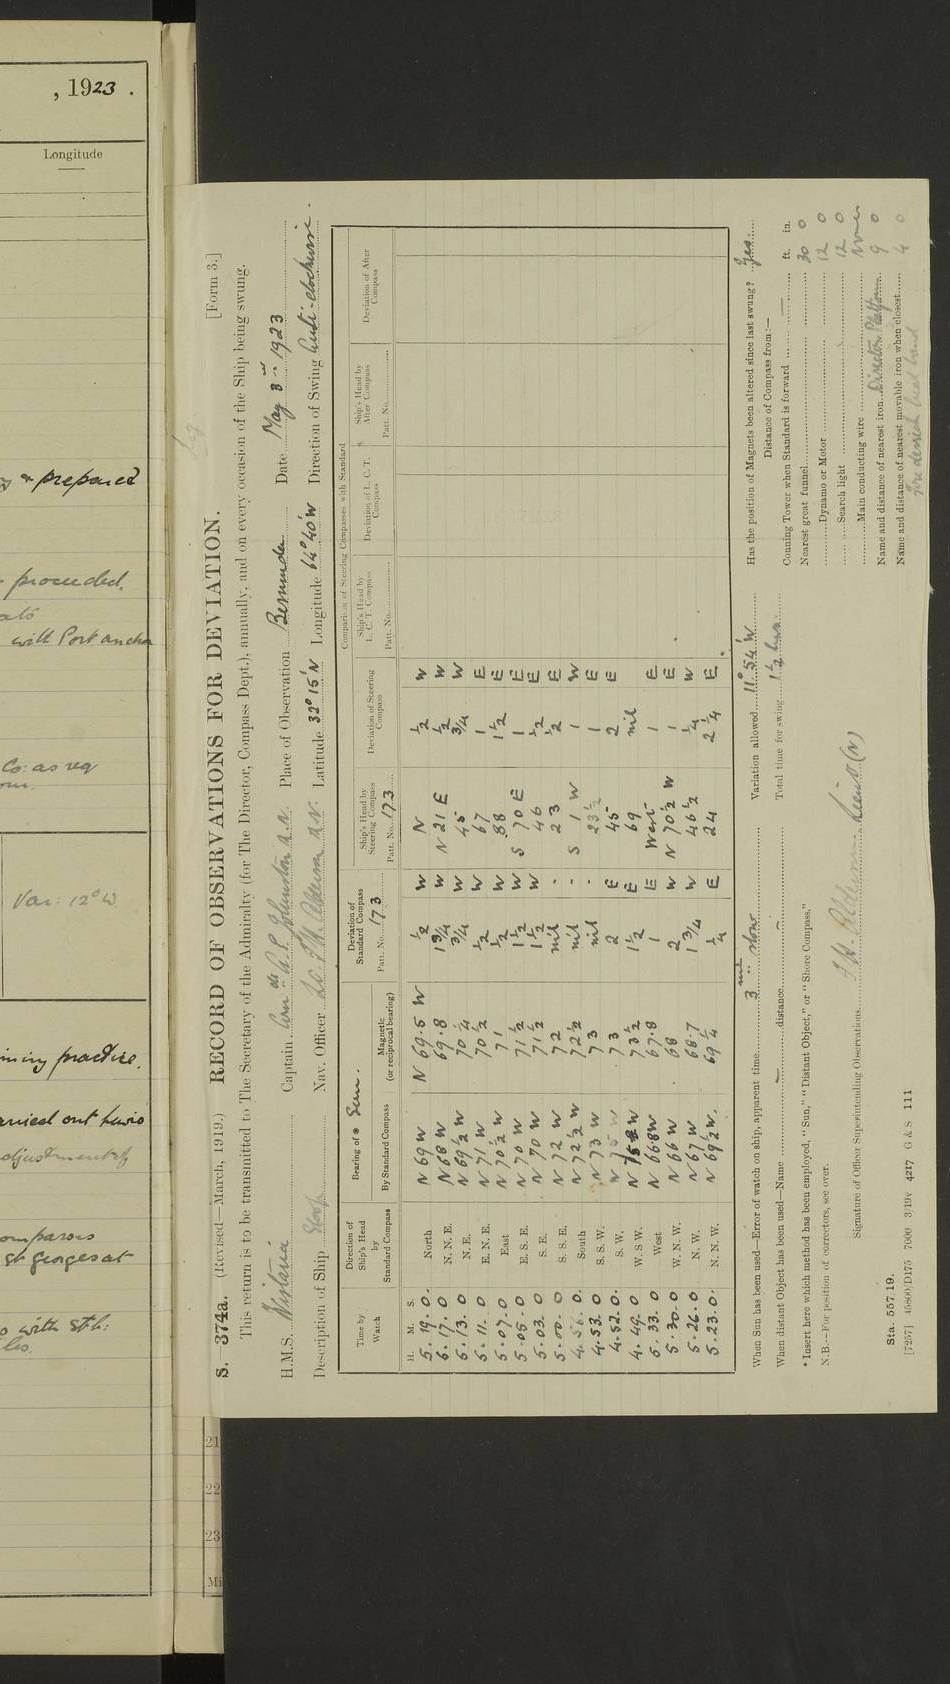 , 1923 .
Longitude
& prepared
proceeded.
with Port anchor
Co: as req
Var: 12° W
practice.
carried out
adjustment of
St Georges at
with
21
22
23
S. 374a. (Revised—March, 1919.) RECORD OF OBSERVATIONS FOR DEVIATION. [Form 3.]
This return is to be transmitted to The Secretary of the Admiralty (for The Director, Compass Dept.), annually, and on every occasion of the Ship being swung.
H.M.S. Wistaria Captain Place of Observation Bermuda Date May 8 1923
Description of Ship Sloop Nav. Officer Latitude 32° 15' N Longitude 64° 40' W Direction of Swing Anti-clockwise.
Comparison of Steering Compasses with Standard
Time by Watch
Direction of Ship's Head by Standard Compass
Bearing of * Sun.
By Standard Compass
Magnetic (or reciprocal bearing)
Deviation of Standard Compass Patt. No. 173
Ship's Head by Steering Compass Patt. No. 173
Deviation of Steering Compass
Ship's Head by L. C. T. Compass Patt. No.
Deviation of L. C. T. Compass
Ship's Head by After Compass Patt. No.
Deviation of After Compass
H. M. S.
5. 19. 0. North N 69 W N 69.5 W ½ W N ½ W
5. 17. 0 N. N. E. N 68 W 69.8 1¾ W N 21 E ½ W
5. 13. 0 N. E. N 69½ W 70¼ ¾ W 45 ¾ W
5. 11. 0 E. N. E. N 71 W 70½ ½ W 67 1 E
5. 07. 0 East N 70½ W 71 ½ W 88 1½ E
5. 05. 0 E. S. E. N 70 W 71½ 1½ W S 70 E 1 E
5. 03. 0 S. E. N 70 W 71½ 1½ W 46 ½ E
5. 00. 0 S. S. E. N 72 W 72 nil - 23 ½ E
4. 56. 0. South N 72½ W 72½ nil - S 1 W 1 W
4. 53. 0 S. S. W. N 73 W 73 nil - 23½ 1 E
4. 52. 0. S. W. N W 73 2 E 45 2 E
4. 49. 0 W. S. W. 73½ 1½ E 69 nil
5. 33. 0 West N 66.8 W 67.8 1 E West 1 E
5. 30. 0 W. N. W. N 66 W 68 2 W N 70½ W 1 E
5. 26. 0 N. W. N 67 W 68.7 1¾ W 46½ ¼ W
5. 23. 0. N. N. W. N 69½ W. 69¼ ¼ E 24 2¼ E
When Sun has been used—Error of watch on ship, apparent time 3 slow Variation allowed 11° 54' W Has the position of Magnets been altered since last swung? Yes.
When distant Object has been used—Name distance Total time for swing 1½ hrs Distance of Compass from:—
* Insert here which method has been employed, "Sun," "Distant Object," or "Shore Compass."
N.B.—For position of correctors, see over.
Signature of Officer Superintending Observations. Lieut (N)
ft. in.
Conning Tower when Standard is forward
Nearest great funnel 30 0
Dynamo or Motor 12 0
Search light 12 0
Main conducting wire
Name and distance of nearest iron Director Platform 9 0
Name and distance of nearest movable iron when closest 4 0
Fore derrick heel band
Sta. 557/19.
[7257] 45800/D175 7000 3/19v 4217 G & S 111